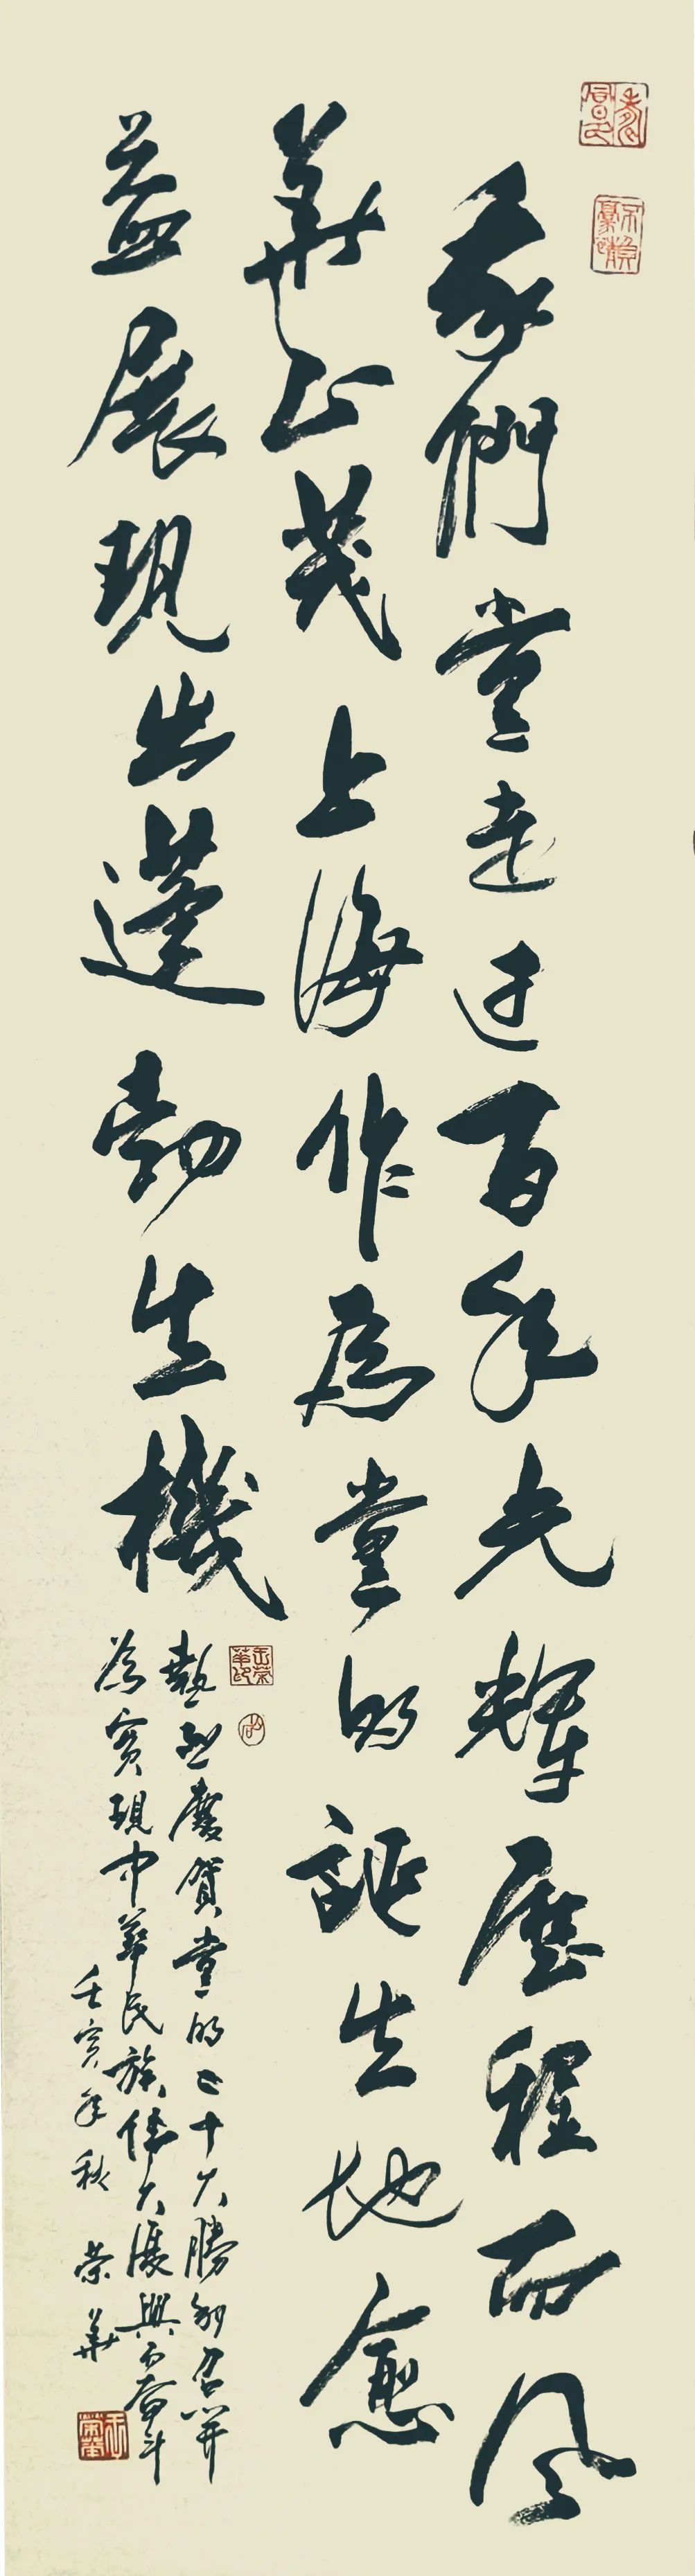 我們黨走过百年光輝歷程而风
華正茂上海作為黨的誕生地愈
益展現出蓬勃生機
熱烈慶賀黨的二十大勝利召开
為實現中華民族偉大復興而奮斗
壬寅年秋 荣華